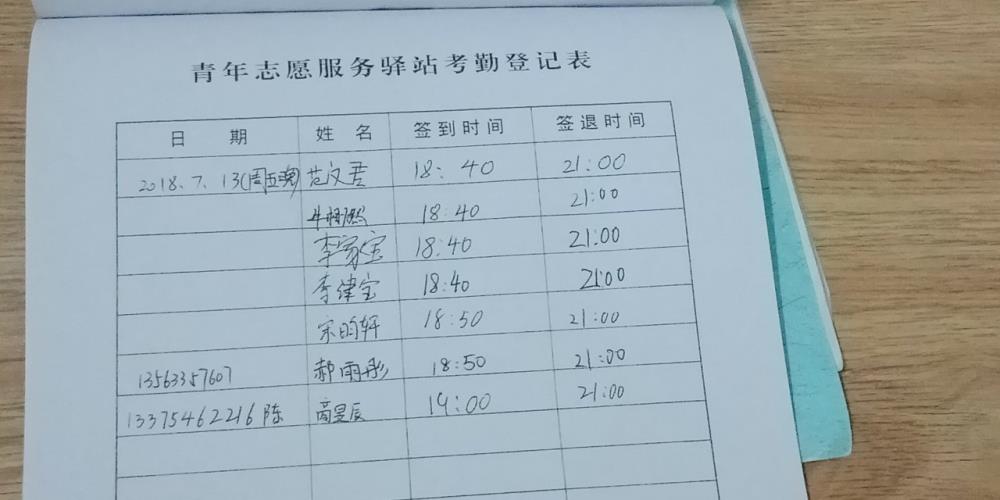 青年志愿服务驿站考勤登记表
日 期 姓 名 签到时间 签退时间
2018.7.13(周五晚) 范文君 18:40 21:00
18:40 21:00
李家宝 18:40 21:00
李津宝 18:40 21:00
宋昀轩 18:50 21:00
13563357607 郝雨彤 18:50 21:00
13375462216 陈 高昱辰 19:00 21:00